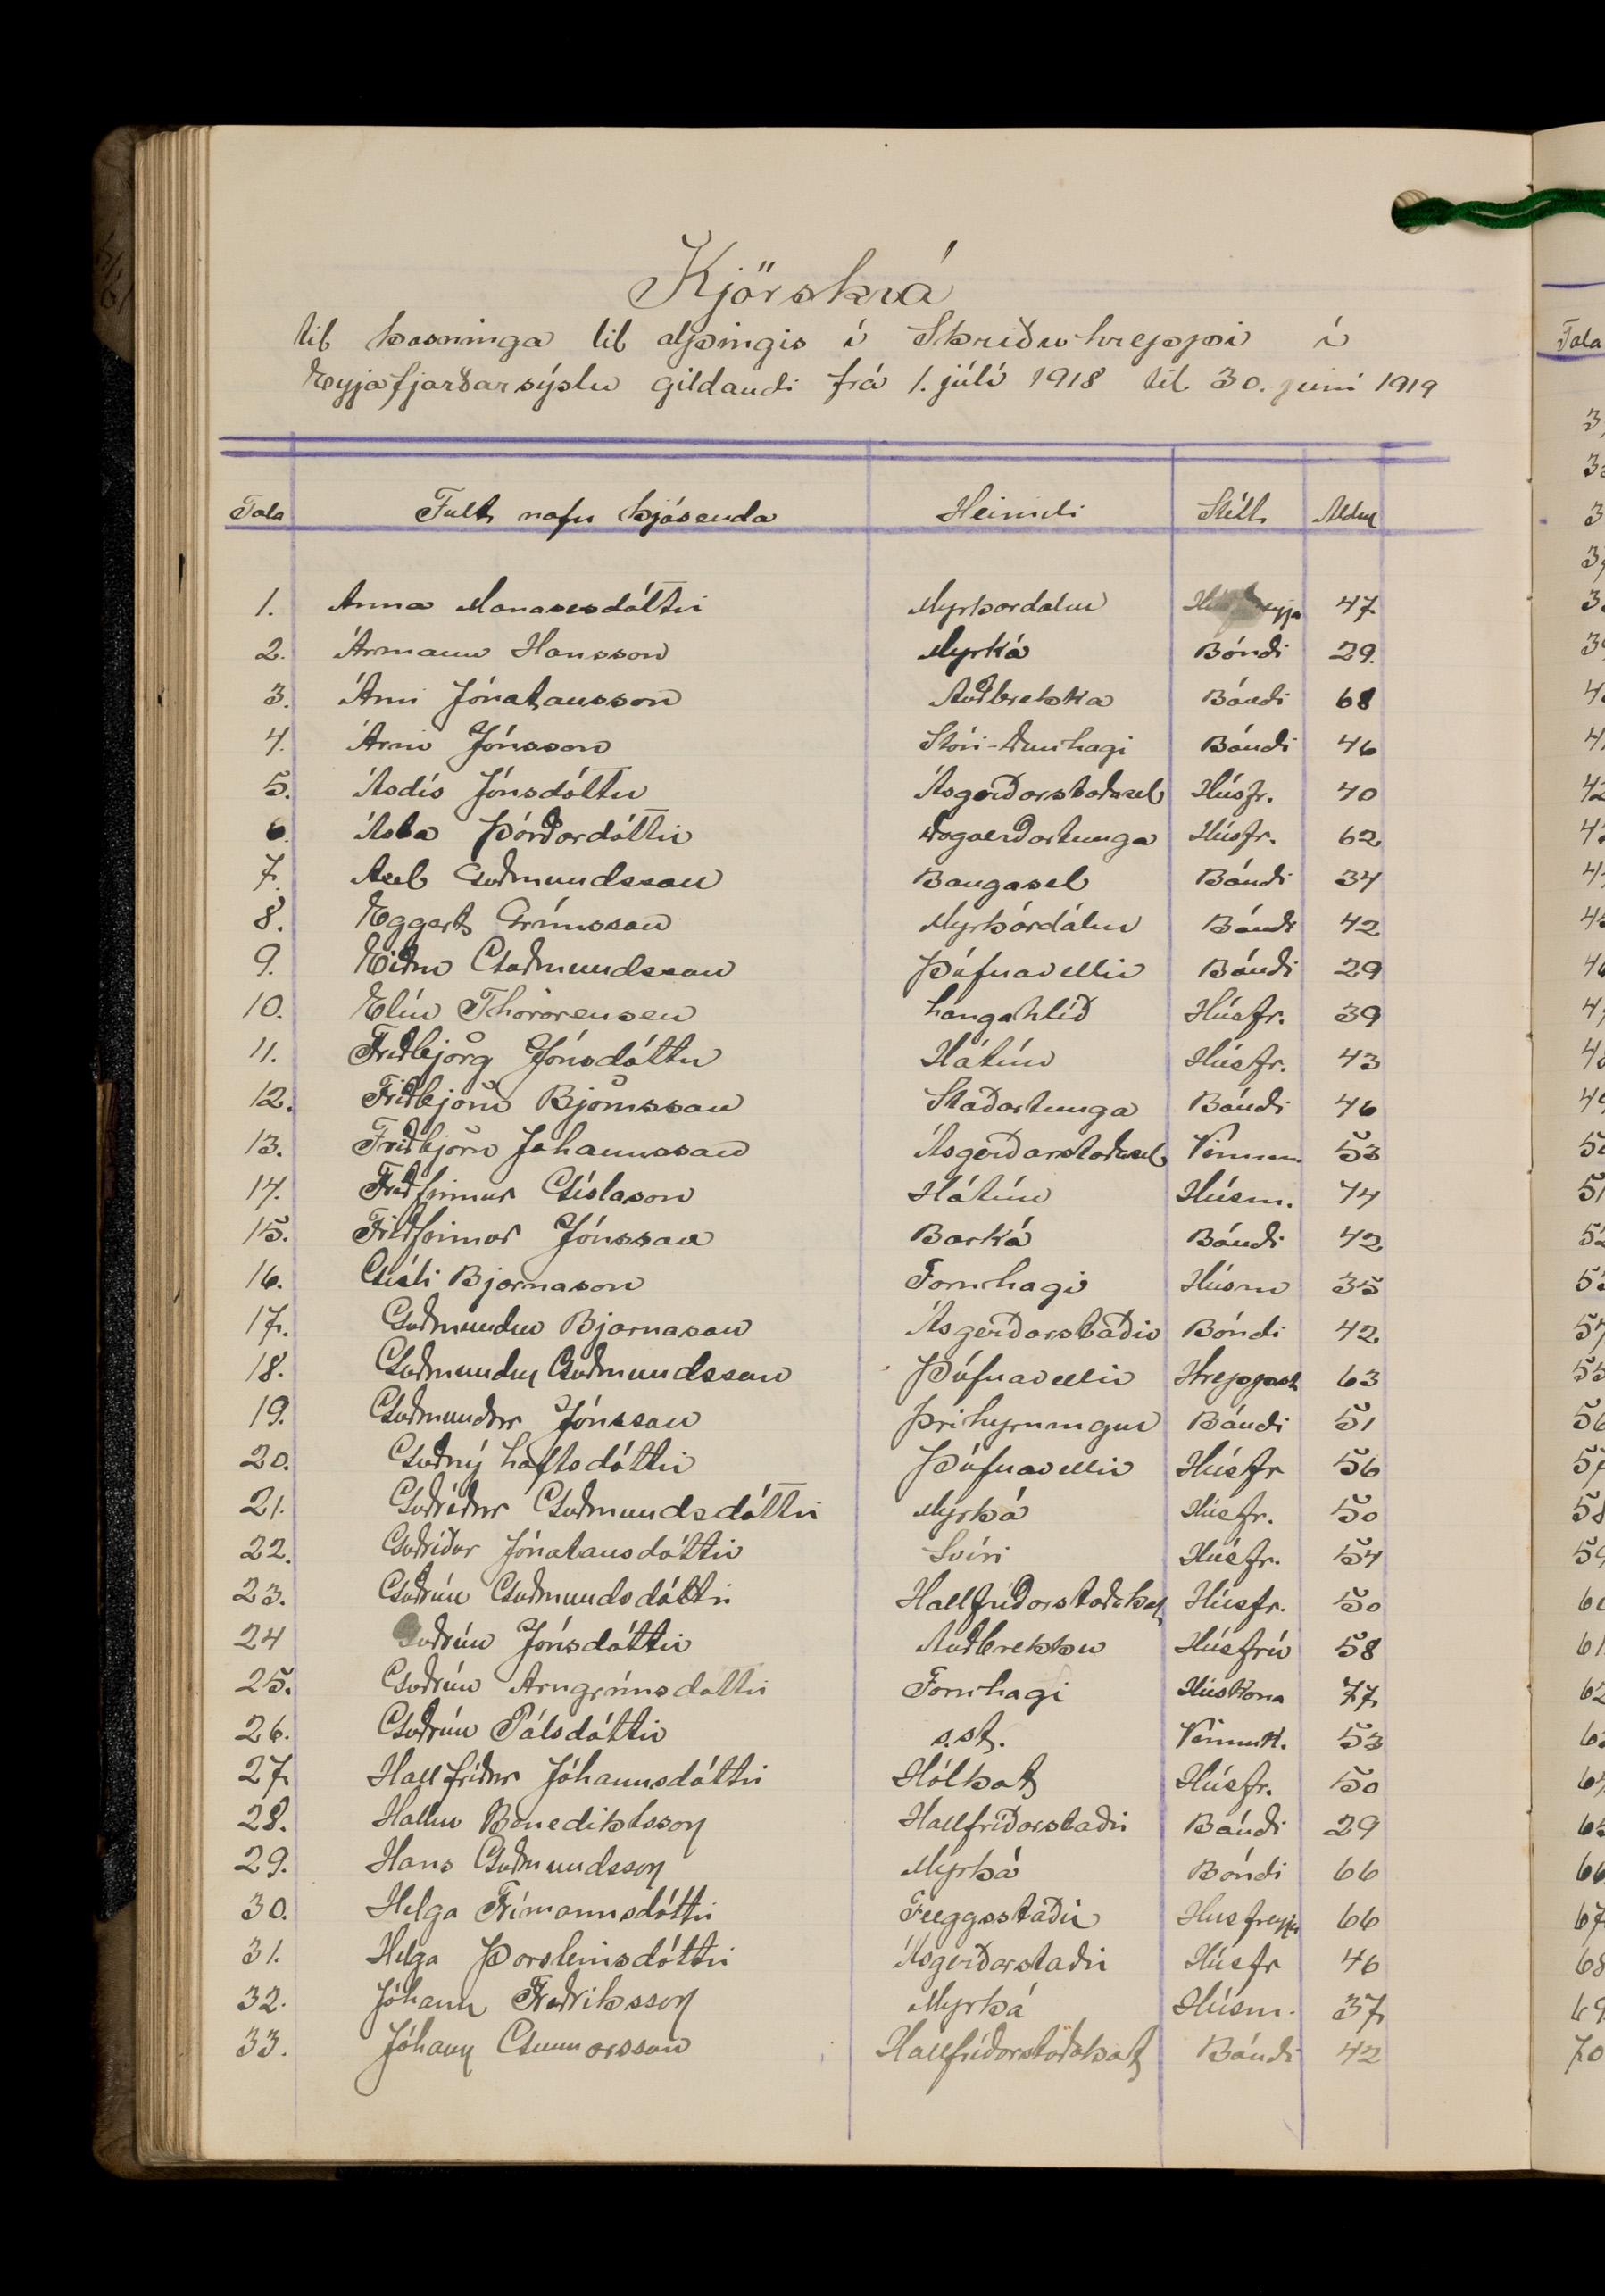 Kjörskrá
til kosninga til alþingis í Skriðuhreppi í
Eyjafjarðarsýslu gildandi frá 1. júlí 1918 til 30. júní 1919
Tala Fullt nafn kjósenda Heimili Stétt Aldur
1. Anna Manasesdóttir Myrkárdalur 47
2. Ármann Hansson Myrká Bóndi 29.
3. Árni Jónatansson Auðbrekka Bóndi 68
4. Árni Jónsson Stóri-Dunhagi Bóndi 46
5. Ásdís Jónsdóttir Ásgerðarstaðasel Húsfr. 40
6. Ásta Þórðardóttir Dagverðartunga Húsfr. 62
7. Axel Guðmundsson Baugasel Bóndi 34
8. Eggert Grímsson Myrkárdalur Bóndi 42
9. Eiður Guðmundsson Þúfnavellir Bóndi 29
10. Elín Thorarensen Langahlíð Húsfr. 39
11. Friðbjörg Jónsdóttir Hátún Húsfr. 43
12. Friðbjörn Björnsson Staðartunga Bóndi 46
13. Friðbjörn Jóhannsson Ásgerðarstaðasel Vinnum 53
14. Friðfinnur Gíslason Hátún Húsm. 74
15. Friðfinnur Jónsson Barká Bóndi 42
16. Gísli Bjarnason Fornhagi Húsm 35
17. Guðmundur Bjarnason Ásgerðarstaðir Bóndi 42
18. Guðmundur Guðmundsson Þúfnavellir Hreppst 63
19. Guðmundur Jónsson Þríhyrningur Bóndi 51
20. Guðný Loftsdóttir Þúfnavellir Húsfr 56
21. Guðríður Guðmundsdóttir Myrká Húsfr. 50
22. Guðríður Jónatansdóttir Lóni Húsfr. 54
23. Guðrún Guðmundsdóttir Hallfríðarstaðakot Húsfr. 50
24 Guðrún Jónsdóttir Auðbrekku Húsfrú 58
25. Guðrún Arngrímsdottir Fornhagi Húskona 77
26. Guðrún Pálsdóttir s.st. Vinnuk. 53
27 Hallfríður Jóhannsdóttir Hólkot Húsfr. 50
28. Hallur Benediktsson Hallfríðarstaðir Bóndi 29
29. Hans Guðmundsson Myrká Bóndi 66
30. Helga Frímannsdóttir Flöggustaðir Húsfreyja 66
31. Helga Þorsteinsdóttir Ásgerðarstaðir Húsfr 46
32. Jóhann Friðriksson Myrká Húsm. 37
33. Jóhann Gunnarsson Hallfríðarstaðakot Bóndi 42
Tala